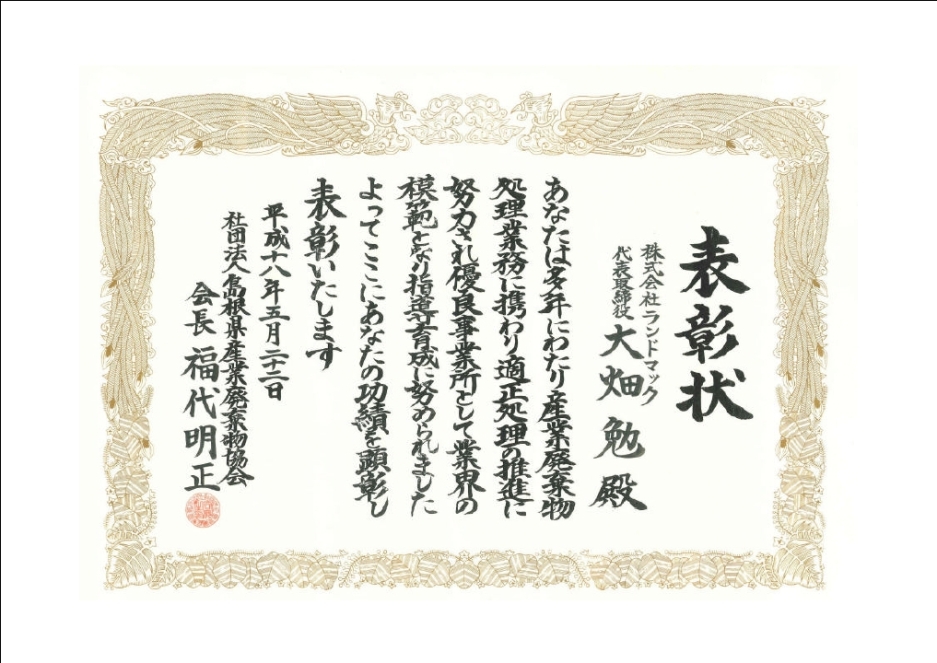 表彰状
株式会社ランドマック
代表取締役 大畑 勉 殿
あなたは多年にわたり産業廃棄物
処理業務に携わり適正処理の推進に
努力され優良事業所として業界の
模範となり指導育成に努められました
よってここにあなたの功績を顕彰し
表彰いたします
平成十八年五月二十二日
社団法人島根県産業廃棄物協会
会長 福代明正